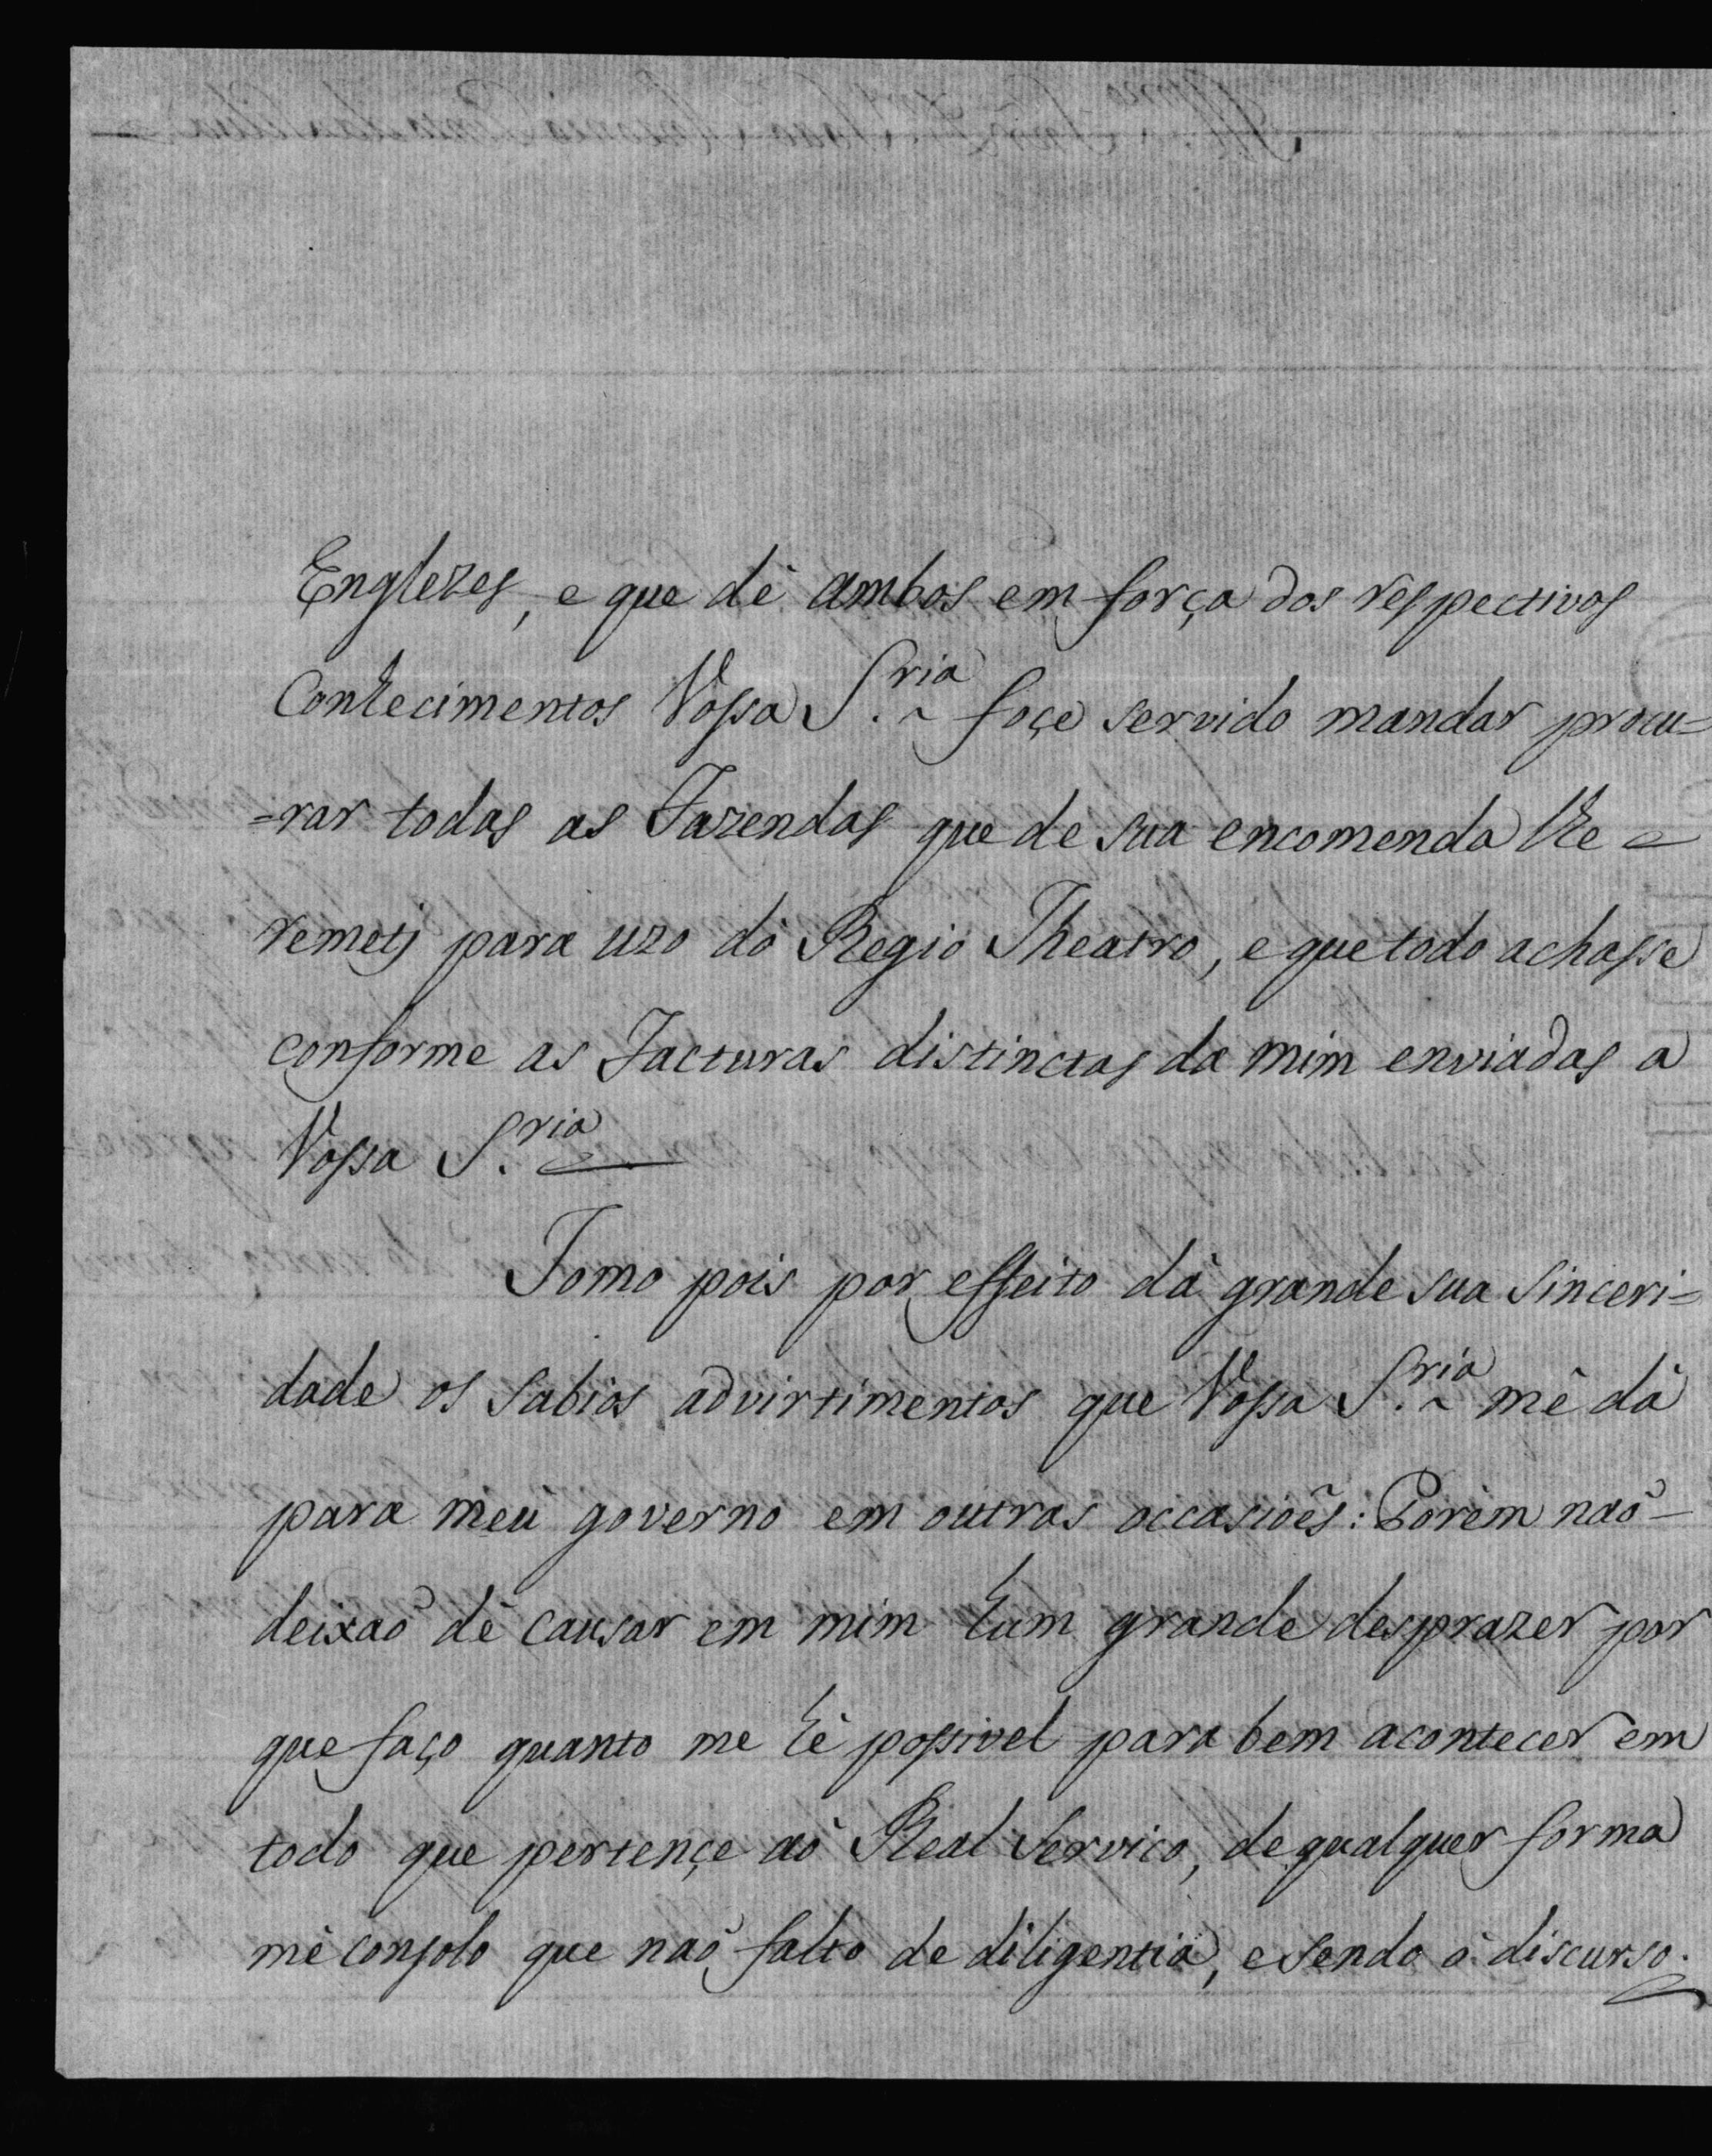 Englezes, e que dè ambos em força dos respectivos
Conhecimentos Vossa S.ria foçe servido mandar procu=
=rar todas as Fazendas que de sua encomenda lhe
remetj para uzo dò Regio Theatro, e que todo achasse
conforme as Facturas distinctas da mim enviadas a
Vossa S.ria
Tomo pois por effeito dà grande sua sinceri=
dade os sabios advirtimentos que Vossa S.ria mè dà
para meù governo em outras occasioẽs: Porèm naõ
deixaõ dè causar em mim hum grande desprazer por
que faço quanto me hè possivel para bem acontecer em
todo que pertençe aò Real Servico, de qualquer forma
mè consolo que naõ falto de diligentia, e sendo ò discurso.